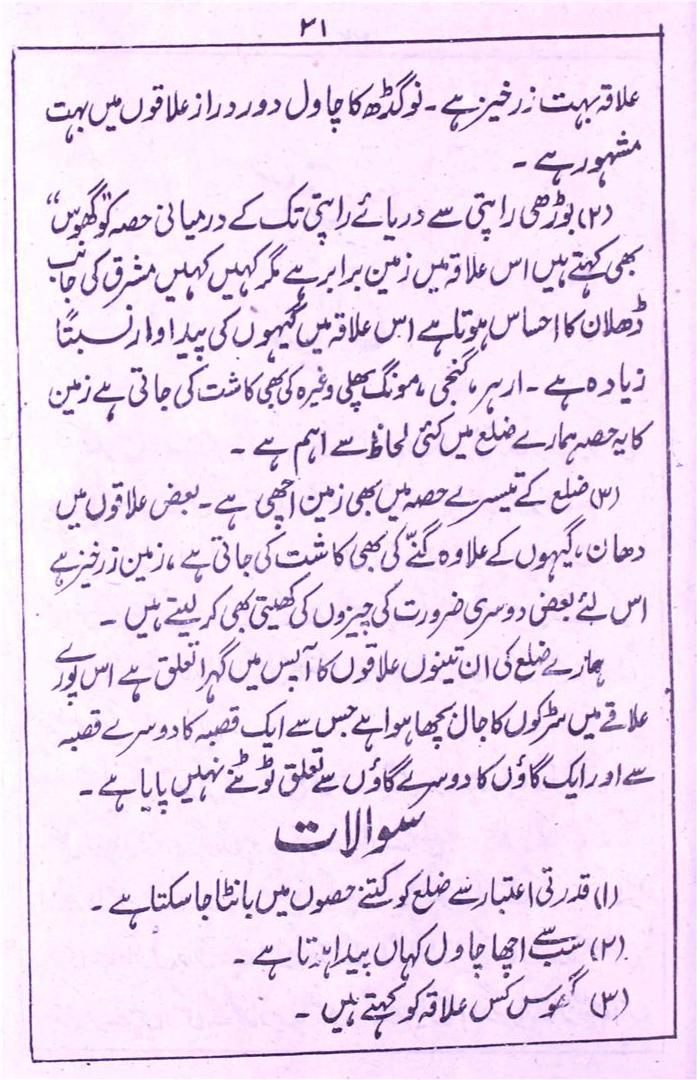 ۳۱
علاقہ بہت زرخیز ہے ۔ نوگڈھ کا چاول دور دراز علاقوں میں بہت
مشہور ہے ۔
(۲) بوڑھی راپتی سے دریائے راپتی تک کے درمیانی حصہ کو ”گھوس“
بھی کہتے ہیں اس علاقہ میں زمین برابر ہے مگر کہیں کہیں مشرق کی جانب
ڈھلان کا احساس ہوتا ہے اس علاقہ میں گیہوں کی پیداوار نسبتاً
زیادہ ہے ۔ ارہر، گنجی، مونگ پھلی وغیرہ کی بھی کاشت کی جاتی ہے زمین
کا یہ حصہ ہمارے ضلع میں کئی لحاظ سے اہم ہے ۔
(۳) ضلع کے تیسرے حصہ میں بھی زمین اچھی ہے ۔ بعض علاقوں میں
دھان، گیہوں کے علاوہ گنّے کی بھی کاشت کی جاتی ہے، زمین زرخیز ہے
اس لئے بعض دوسری ضرورت کی چیزوں کی کھیتی بھی کر لیتے ہیں ۔
ہمارے ضلع کی ان تینوں علاقوں کا آپس میں گہرا تعلق ہے اس پورے
علاقے میں سڑکوں کا جال بچھا ہوا ہے جس سے ایک قصبہ کا دوسرے قصبہ
سے اور ایک گاؤں کا دوسرے گاؤں سے تعلق ٹوٹنے نہیں پایا ہے ۔
سوالات
(۱) قدرتی اعتبار سے ضلع کو کتنے حصوں میں بانٹا جا سکتا ہے ۔
(۲) سب سے اچھا چاول کہاں پیدا ہوتا ہے ۔
(۳) گھوس کس علاقہ کو کہتے ہیں ۔